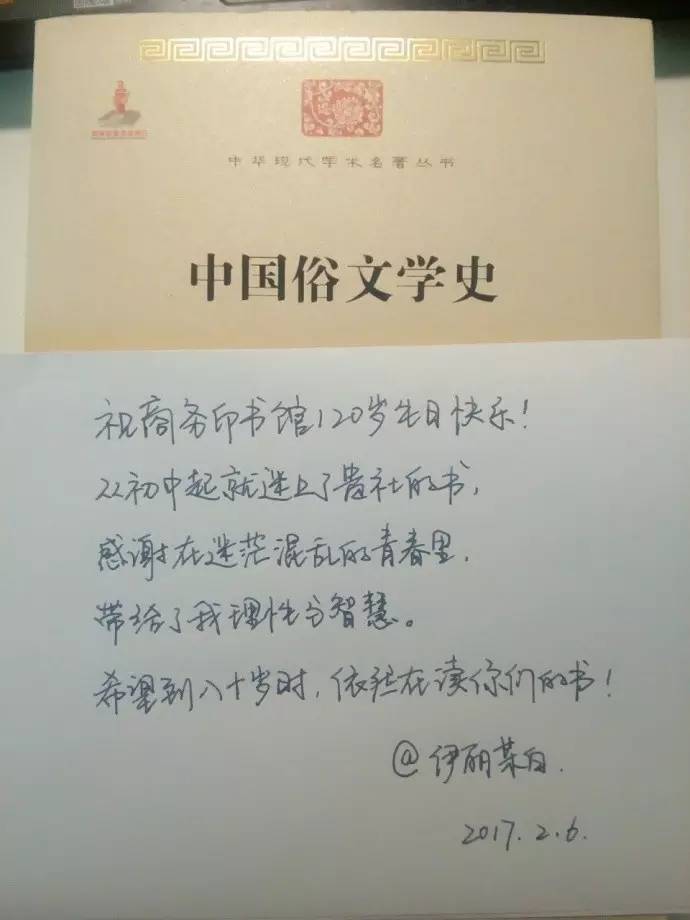 中华现代学术名著丛书
中国俗文学史
祝商务印书馆120岁生日快乐!
从初中起就迷上了贵社的书,
感谢在迷茫混乱的青春里,
带给了我理性与智慧。
希望到八十岁时,依然在读你们的书!
@伊丽某白.
2017.2.6.